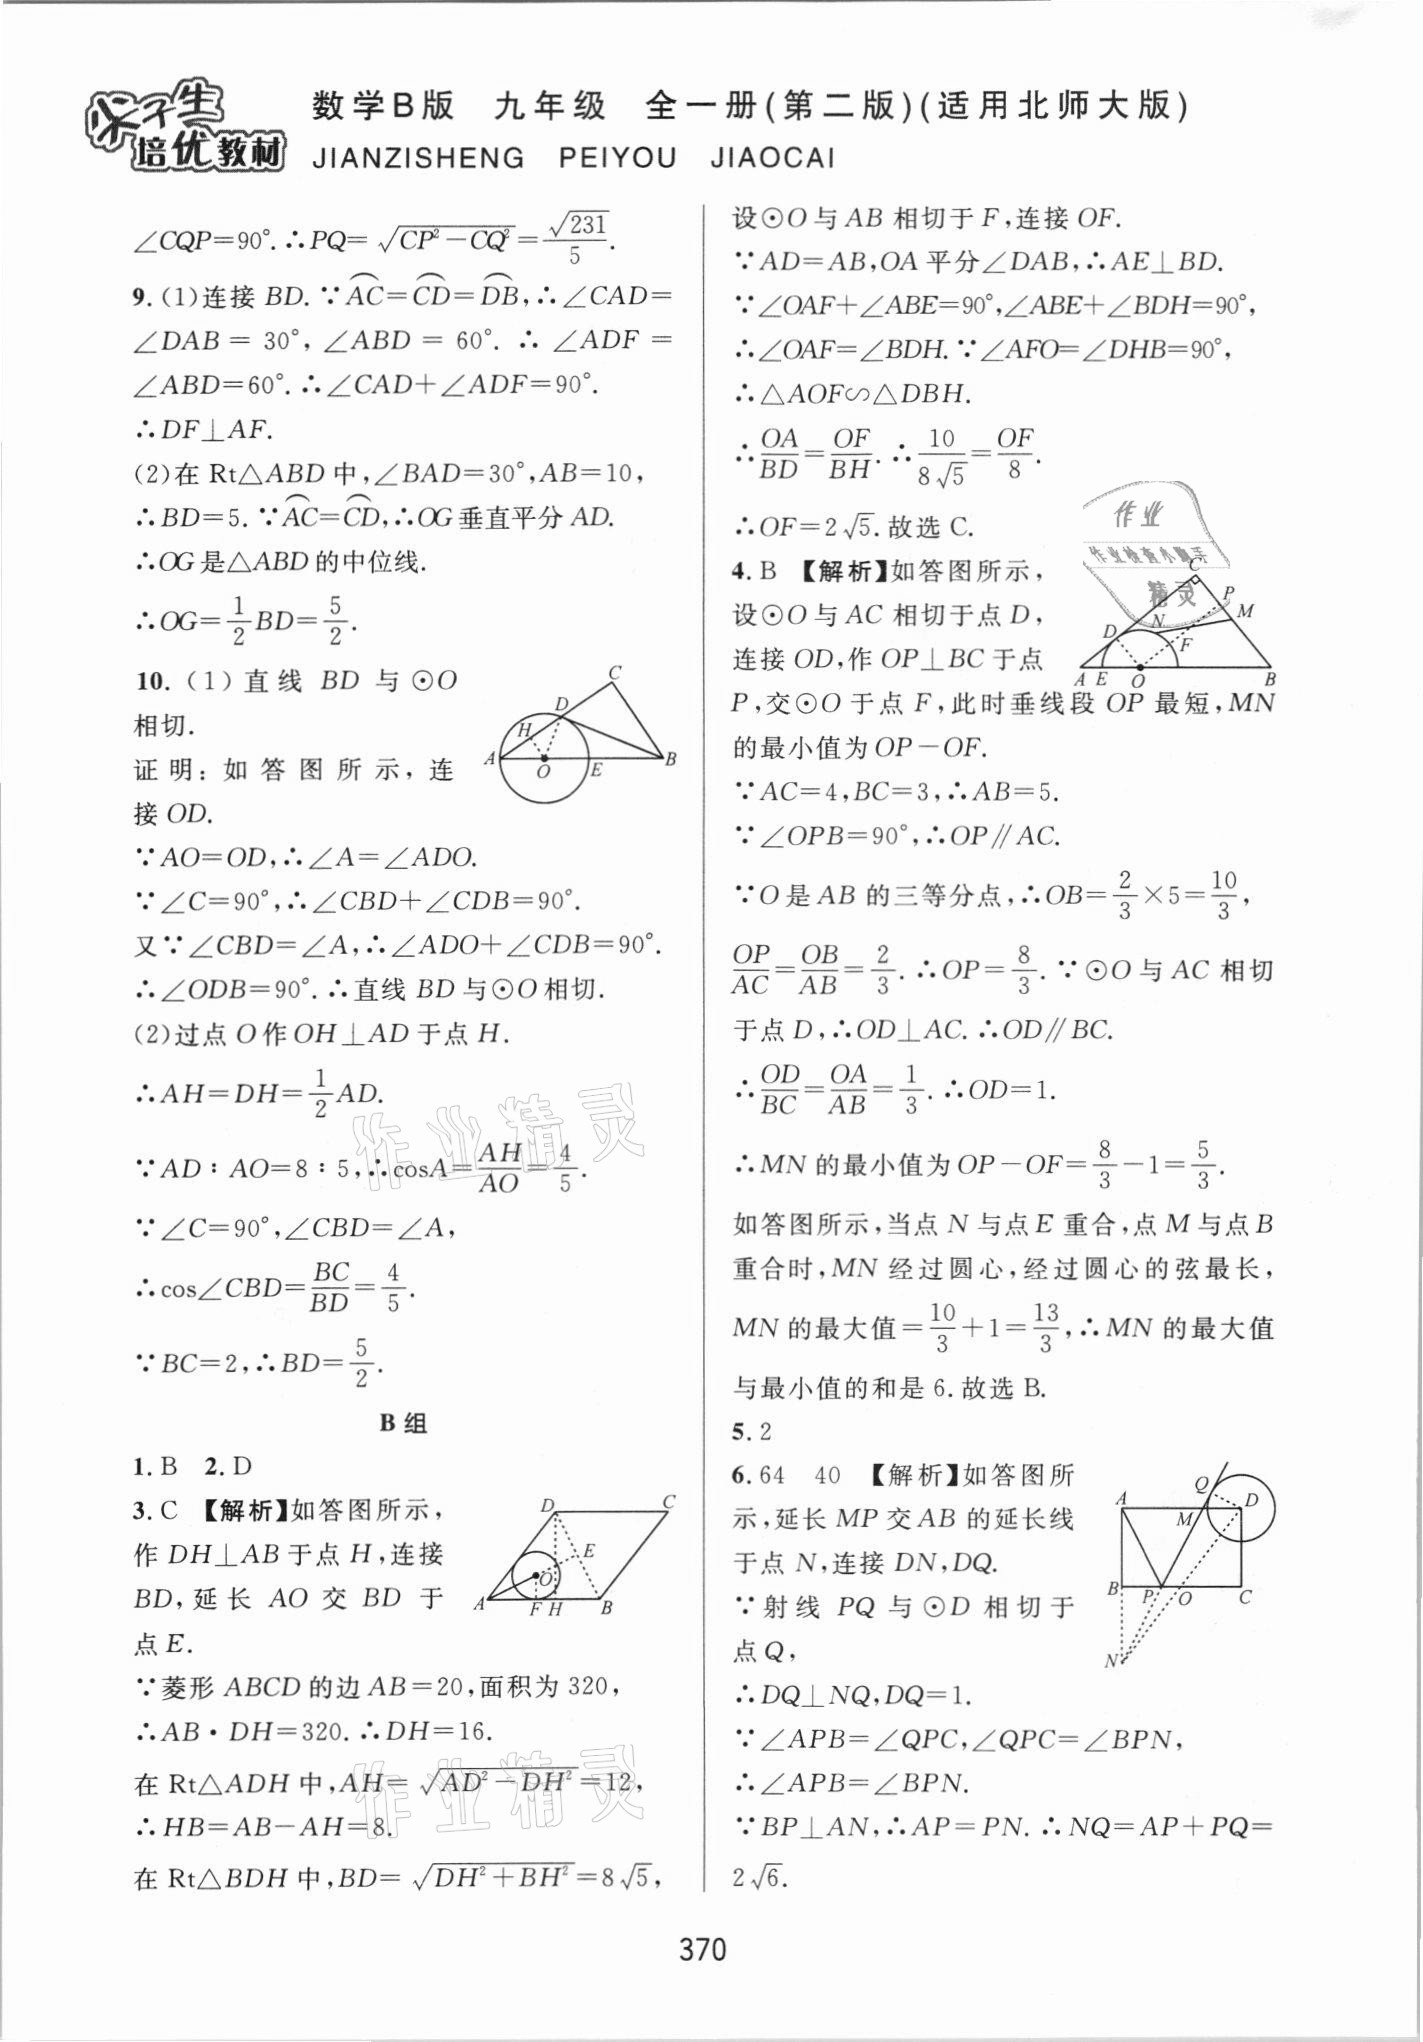 尖子生
培优教材
数学B版 九年级 全一册(第二版)(适用北师大版)
JIANZISHENG PEIYOU JIAOCAI
∠CQP=90°.∴PQ=√(CP²-CQ²)=√231/5.
9.(1)连接 BD.∵⌒AC=⌒CD=⌒DB,∴∠CAD=
∠DAB=30°,∠ABD=60°.∴∠ADF=
∠ABD=60°.∴∠CAD+∠ADF=90°.
∴DF⊥AF.
(2)在 Rt△ABD 中,∠BAD=30°,AB=10,
∴BD=5.∵⌒AC=⌒CD,∴OG 垂直平分 AD.
∴OG 是△ABD 的中位线.
∴OG=1/2 BD=5/2.
10.(1)直线 BD 与⊙O
相切.
证明:如答图所示,连
接 OD.
A H D C O E B
∵AO=OD,∴∠A=∠ADO.
∵∠C=90°,∴∠CBD+∠CDB=90°.
又∵∠CBD=∠A,∴∠ADO+∠CDB=90°.
∴∠ODB=90°.∴直线 BD 与⊙O 相切.
(2)过点 O 作 OH⊥AD 于点 H.
∴AH=DH=1/2 AD.
∵AD∶AO=8∶5,∴cosA=AH/AO=4/5.
∵∠C=90°,∠CBD=∠A,
∴cos∠CBD=BC/BD=4/5.
∵BC=2,∴BD=5/2.
B 组
1.B 2.D
3.C 【解析】如答图所示,
作 DH⊥AB 于点 H,连接
BD,延长 AO 交 BD 于
点 E.
D C E O A F H B
∵菱形 ABCD 的边 AB=20,面积为 320,
∴AB·DH=320.∴DH=16.
在 Rt△ADH 中,AH=√(AD²-DH²)=12,
∴HB=AB-AH=8.
在 Rt△BDH 中,BD=√(DH²+BH²)=8√5,
设⊙O 与 AB 相切于 F,连接 OF.
∵AD=AB,OA 平分∠DAB,∴AE⊥BD.
∵∠OAF+∠ABE=90°,∠ABE+∠BDH=90°,
∴∠OAF=∠BDH.∵∠AFO=∠DHB=90°,
∴△AOF∽△DBH.
∴OA/BD=OF/BH.∴10/(8√5)=OF/8.
∴OF=2√5.故选 C.
4.B 【解析】如答图所示,
设⊙O 与 AC 相切于点 D,
连接 OD,作 OP⊥BC 于点
C P M D N F A E O B
P,交⊙O 于点 F,此时垂线段 OP 最短,MN
的最小值为 OP-OF.
∵AC=4,BC=3,∴AB=5.
∵∠OPB=90°,∴OP∥AC.
∵O 是 AB 的三等分点,∴OB=2/3×5=10/3,
OP/AC=OB/AB=2/3.∴OP=8/3.∵⊙O 与 AC 相切
于点 D,∴OD⊥AC.∴OD∥BC.
∴OD/BC=OA/AB=1/3.∴OD=1.
∴MN 的最小值为 OP-OF=8/3-1=5/3.
如答图所示,当点 N 与点 E 重合,点 M 与点 B
重合时,MN 经过圆心,经过圆心的弦最长,
MN 的最大值=10/3+1=13/3,∴MN 的最大值
与最小值的和是 6.故选 B.
5.2
6.64 40 【解析】如答图所
示,延长 MP 交 AB 的延长线
于点 N,连接 DN,DQ.
∵射线 PQ 与⊙D 相切于
点 Q,
Q A M D B P O C N
∴DQ⊥NQ,DQ=1.
∵∠APB=∠QPC,∠QPC=∠BPN,
∴∠APB=∠BPN.
∵BP⊥AN,∴AP=PN.∴NQ=AP+PQ=
2√6.
370
作业
作业检查小帮手
精灵
作业精灵
作业精灵